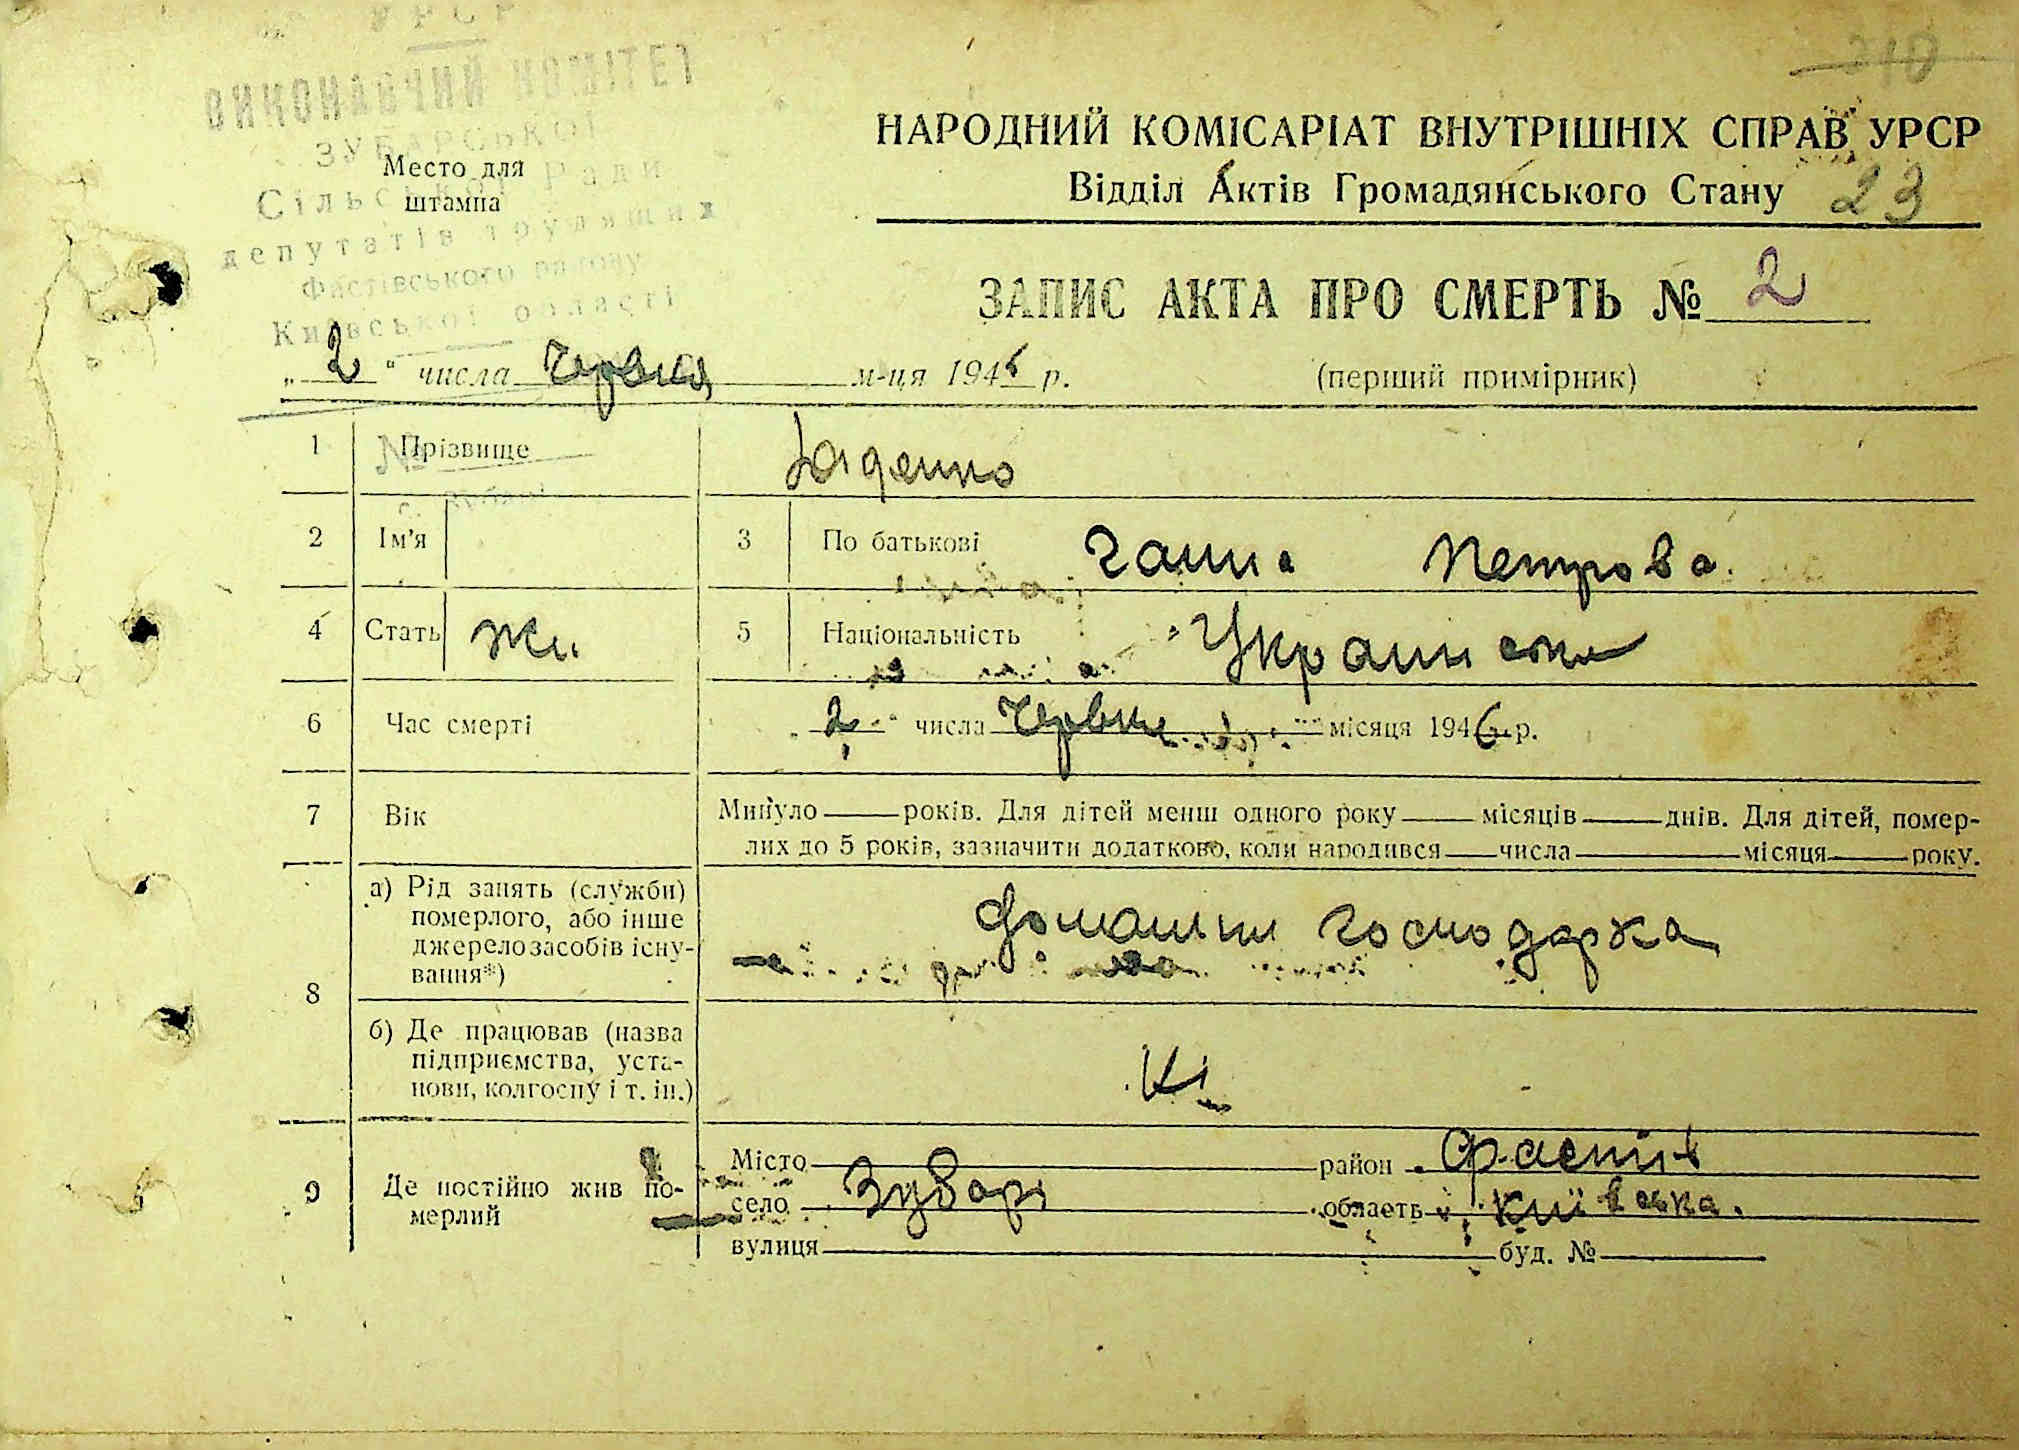 УРСР
ВИКОНАВЧИЙ КОМІТЕТ
ЗУБАРСЬКОЇ
Сільської Ради
депутатів трудящих
Фастівського району
Київської області
№
Место для
штампа
310
НАРОДНИЙ КОМІСАРІАТ ВНУТРІШНІХ СПРАВ УРСР
Відділ Актів Громадянського Стану
23
ЗАПИС АКТА ПРО СМЕРТЬ № 2
„ 2 “ числа Червня м-ця 1946 р.
(перший примірник)
1 Прізвище Юденко
2 Ім'я 3 По батькові Ганна Петрова.
4 Стать Жи 5 Національність Украинська
6 Час смерті „ 2 “ числа Червня місяця 1946 р.
7 Вік Минуло ___ років. Для дітей менш одного року ___ місяців ___ днів. Для дітей, помер-
лих до 5 років, зазначити додатково, коли народився ___ числа ___ місяця ___ року.
8 а) Рід занять (служби)
померлого, або інше
джерело засобів існу-
вання*)
домашня господарка
б) Де працював (назва
підприємства, уста-
нови, колгоспу і т. ін.)
9 Де постійно жив по-
мерлий
Місто ___ район Фастів
село Зубарі область Київська.
вулиця ___ буд. № ___